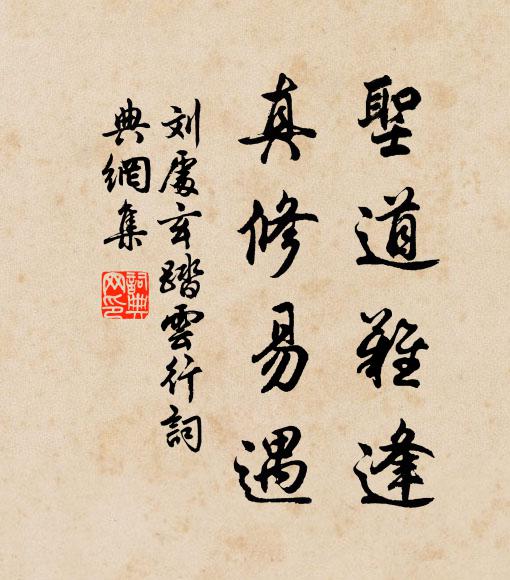 聖道難逢
真修易遇
刘處玄踏雲行詞
典網集
詞典
网印